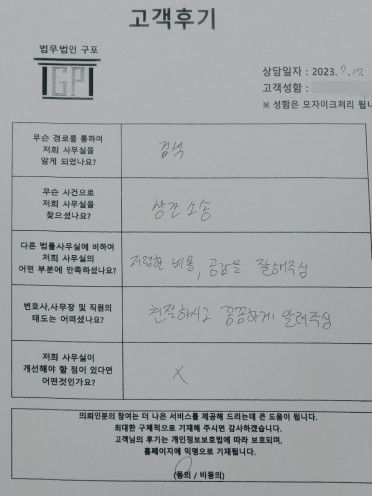 고객후기
법무법인 구포
GP
상담일자 : 2023. 7.12
고객성함 :
※ 성함은 모자이크처리 됩니
무슨 경로를 통하여
저희 사무실을
알게 되었나요?
검색
무슨 사건으로
저희 사무실을
찾으셨나요?
상간 소송
다른 법률사무실에 비하여
저희 사무실의
어떤 부분에 만족하셨나요?
저렴한 비용, 공감을 잘해주심
변호사,사무장 및 직원의
태도는 어떠셨나요?
친절하시고 꼼꼼하게 알려주심
저희 사무실이
개선해야 할 점이 있다면
어떤것인가요?
X
의뢰인분의 참여는 더 나은 서비스를 제공해 드리는데 큰 도움이 됩니다.
최대한 구체적으로 기재해 주시면 감사하겠습니다.
고객님의 후기는 개인정보보호법에 따라 보호되며,
홈페이지에 익명으로 기재됩니다.
(동의 / 비동의)